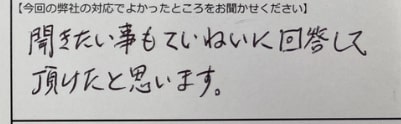 【今回の弊社の対応でよかったところをお聞かせください】
聞きたい事もていねいに回答して
頂けたと思います。